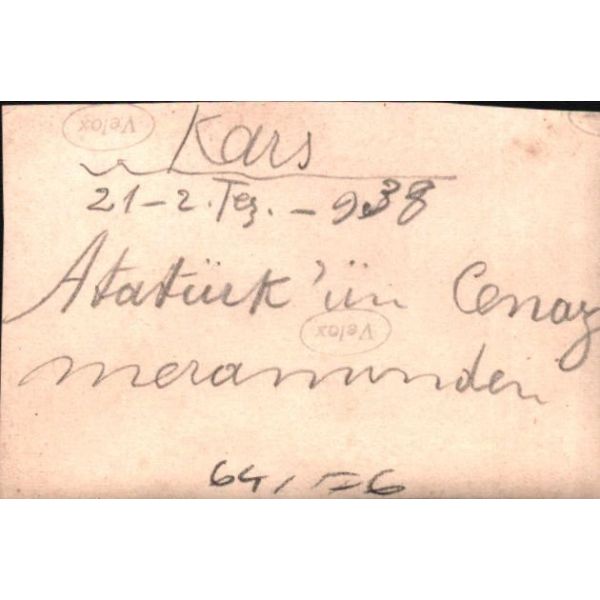 Velox
Kars
21-2.Teş.-938
Atatürk'ün Cenaz
Velox
meramından
64/